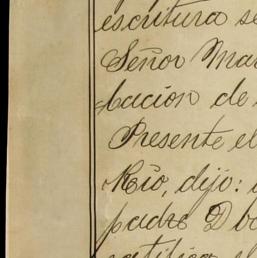 escritura se
Señor Mar
bacion de
Presente el
Rio, dijo:
padre D
ratifica el